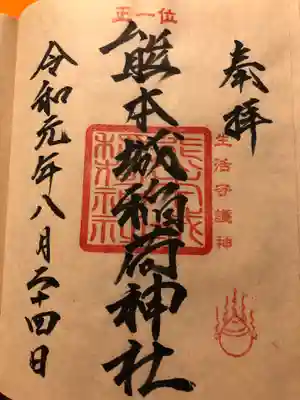 奉拝
生活守護神
正一位
熊本城稲荷神社
令和元年八月二十四日